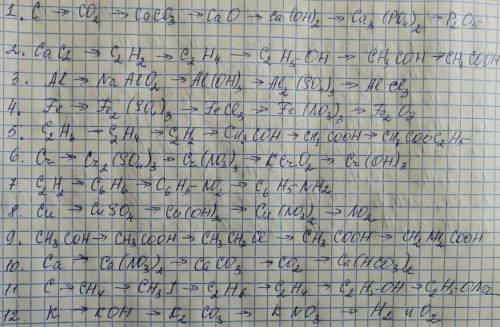 1. C → CO2 → CaCO3 → CaO → Ca(OH)2 → Ca3(PO4)2 → P2O5
2. CaC2 → C2H2 → C2H4 → C2H5-OH → CH3COH → CH3COOH
3. Al → NaAlO2 → Al(OH)3 → Al2(SO4)3 → AlCl3
4. Fe → Fe2(SO4)3 → FeCl3 → Fe(NO3)3 → Fe2O3
5. C2H6 → C2H4 → C2H2 → CH3COH → CH3COOH → CH3COOC2H5
6. Cr → Cr2(SO4)3 → Cr(NO3)3 → KCrO2 → Cr(OH)3
7. C2H2 → C6H6 → C6H5-NO2 → C6H5-NH2
8. Cu → CuSO4 → Cu(OH)2 → Cu(NO3)2 → NO2
9. CH3COH → CH3COOH → CH3CH2Cl → CH3COOH → CH2NH2COOH
10. Ca → Ca(NO3)2 → CaCO3 → CO2 → Ca(HCO3)2
11 C → CH4 → CH3I → C2H6 → C2H4 → C2H5-OH → C2H5-ONa
12. K → KOH → K2CO3 → KNO3 → H2 и O2